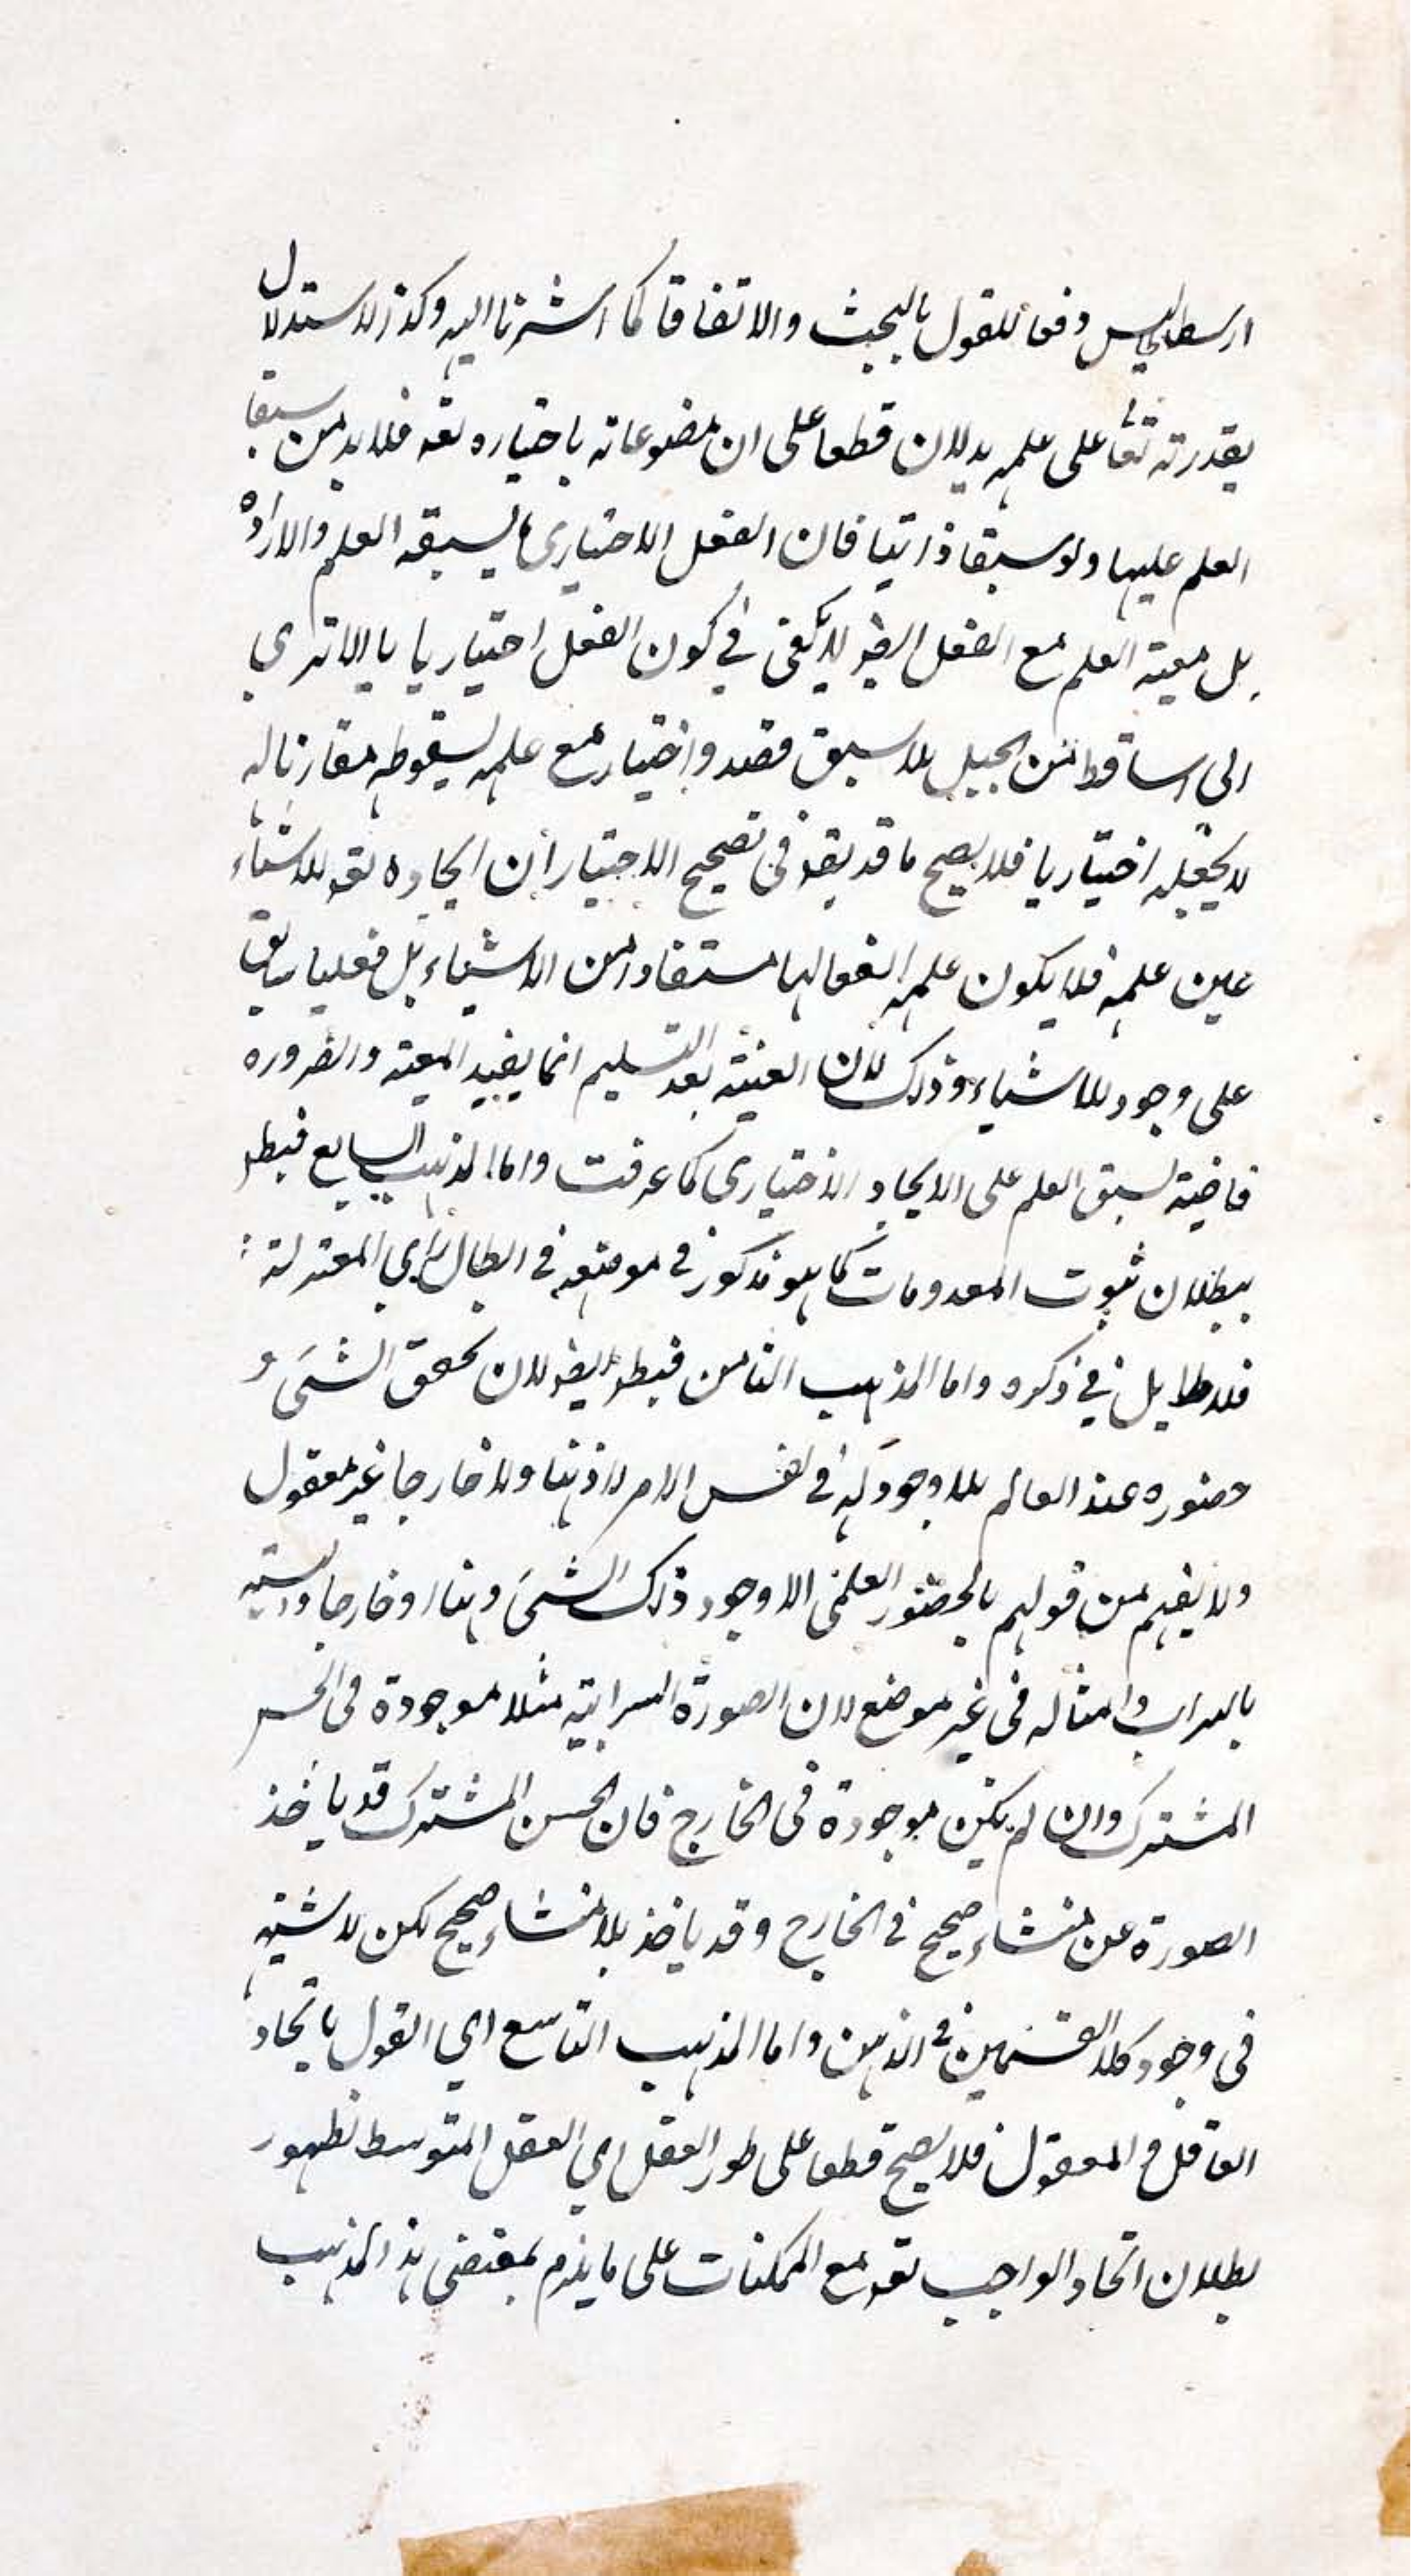 ارسطاطاليس دفعا للقول بالبخت والاتفاق كما اشرنا اليه وكذا الاستدلال
بقدرته تعا على علمه يدلان قطعا على ان مصنوعاته باختياره تعه فلا بد من سبق
العلم عليها ولو سبقا ذاتيا فان الفعل الاختياري ما يسبقه العلم والارادة
بل معية العلم مع الفعل ايضا لا يكفي في كون الفعل اختياريا الا ترى
الى ساقط من الجبل بلا سبق قصد واختيار مع علمه بسقوطه مقارنا له
لا يجعله اختياريا فلا يصح ما قد يقه في تصحيح الاختيار ان ايجاده تعه للاشياء
عين علمه فلا يكون علمه انفعاليا مستفادا من الاشياء بل فعليا سابقا
على وجود الاشياء وذلك لان العينية بعد التسليم انما يفيد المعية والضرورة
قاضية بسبق العلم على الايجاد الاختياري كما عرفت واما المذهب السابع فبطه
ببطلان ثبوت المعدومات كما هو مذكور في موضعه في ابطال راي المعتزلة
فلا طايل في ذكره واما المذهب الثامن فبطه ايضا لان تحقق الشئ و
حضوره عند العالم بلا وجود له في نفس الامر لا ذهنا ولا خارجا غير معقول
ولا يفهم من قولهم بالحضور العلمي الا وجود ذلك الشئ ذهنا او خارجا وتشبيه
بالسراب وامثاله في غير موضع لان الصورة السرابية مثلا موجودة في الحس
المشترك وان لم يكن موجودة في الخارج فان الحس المشترك قد ياخذ
الصورة عن منشاء صحيح في الخارج وقد ياخذ بلا منشاء صحيح لكن لا شبهة
في وجود كلا القسمين في الذهن واما المذهب التاسع اي القول باتحاد
العاقل والمعقول فلا يصح قطعا على طور العقل اي العقل المتوسط لظهور
بطلان اتحاد الواجب تعه مع الممكنات على ما يلزم بمقتضى هذا المذهب